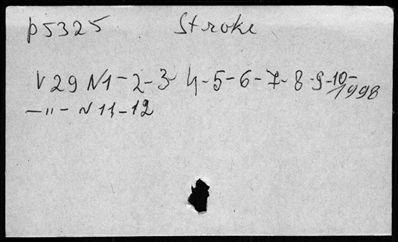 p5325 Stroke
V 29 N1-2-3- 4-5-6-7-8-9-10-
1998
-"- N 11-12